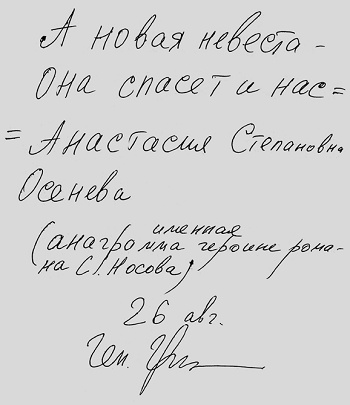 А новая невеста -
Она спасет и нас =
= Анастасия Степановна
Осенева
именная
(анаграмма героине рома-
на С. Носова)
26 авг.
Ген.